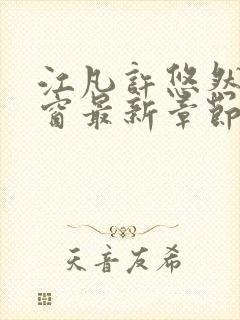 江凡許悠然
窗最新章節
天音友希